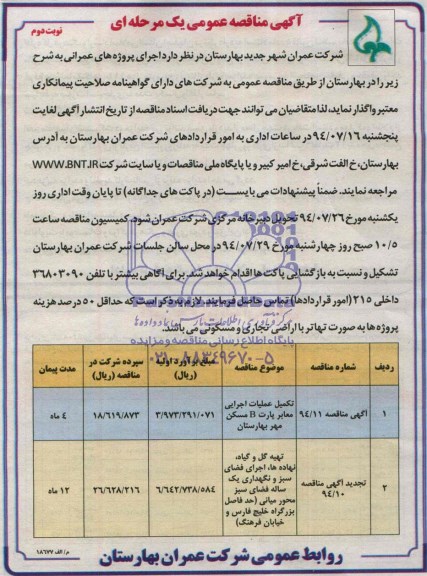 آگهی مناقصه عمومی یک مرحله ای
نوبت دوم
شرکت عمران شهر جدید بهارستان در نظر دارد اجرای پروژه های عمرانی به شرح
زیر را در بهارستان از طریق مناقصه عمومی به شرکت های دارای گواهینامه صلاحیت پیمانکاری
معتبر واگذار نماید، لذا متقاضیان می توانند جهت دریافت اسناد مناقصه از تاریخ انتشار آگهی لغایت
پنجشنبه ۹۴/۰۷/۱۶ در ساعات اداری به امور قراردادهای شرکت عمران بهارستان به آدرس
بهارستان، خ الفت شرقی، خ امیر کبیر و یا پایگاه ملی مناقصات و یا سایت شرکت WWW.BNT.IR
مراجعه نمایند. ضمناً پیشنهادات می بایست (در پاکت های جداگانه) تا پایان وقت اداری روز
یکشنبه مورخ ۹۴/۰۷/۲۶ تحویل دبیرخانه مرکزی شرکت عمران شود. کمیسیون مناقصه ساعت
۱۰/۵ صبح روز چهارشنبه مورخ ۹۴/۰۷/۲۹ در محل سالن جلسات شرکت عمران بهارستان
تشکیل و نسبت به بازگشایی پاکت ها اقدام خواهد شد. برای آگاهی بیشتر با تلفن ۳۶۸۰۳۰۹۰
داخلی ۲۱۵ (امور قراردادها) تماس حاصل فرمایند. لازم به ذکر است که حداقل ۵۰ درصد هزینه
پروژه ها به صورت تهاتر با اراضی تجاری و مسکونی می باشند.
پایگاه اطلاع رسانی مناقصه و مزایده
۰۲۱-۸۸۳۴۹۶۷۰-۵
ردیف شماره مناقصه موضوع مناقصه مبلغ برآورد اولیه (ریال) سپرده شرکت در مناقصه (ریال) مدت پیمان
۱ آگهی مناقصه ۹۴/۱۱ تکمیل عملیات اجرایی معابر پارت B مسکن مهر بهارستان ۳/۹۷۳/۲۹۱/۰۷۱ ۱۸/۶۱۹/۸۷۳ ۴ ماه
۲ تجدید آگهی مناقصه ۹۴/۱۰ تهیه گل و گیاه، نهاده ها، اجرای فضای سبز و نگهداری یک ساله فضای سبز محور میانی (حد فاصل بزرگراه خلیج فارس و خیابان فرهنگ) ۶/۶۴۲/۷۳۸/۵۸۴ ۲۶/۶۲۸/۲۱۶ ۱۲ ماه
روابط عمومی شرکت عمران بهارستان
م/الف ۱۸۶۷۷